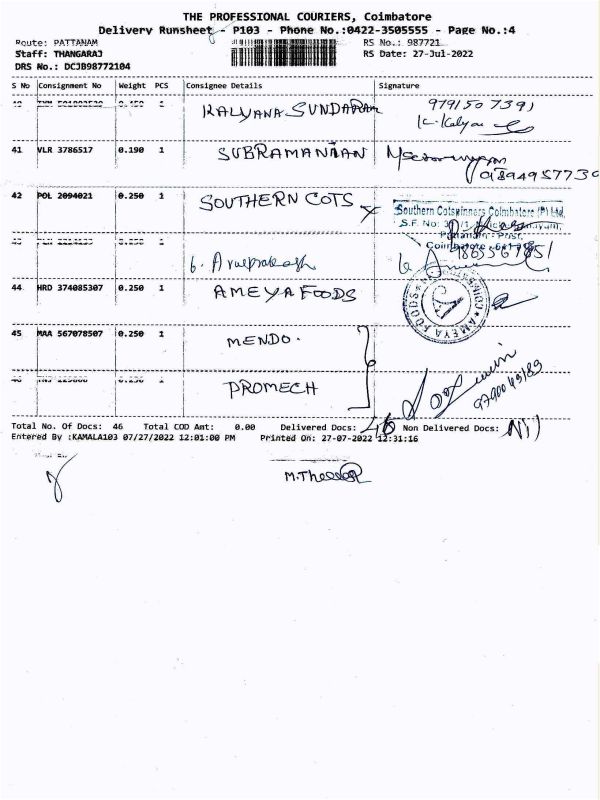 THE PROFESSIONAL COURIERS, Coimbatore
Delivery Runsheet - P103 - Phone No.:0422-3505555 - Page No.:4
Route: PATTANAM RS No.: 987721
Staff: THANGARAJ RS Date: 27-Jul-2022
DRS No.: DCJB98772104
S No Consignment No Weight PCS Consignee Details Signature
KALYANA SUNDARAM 9791507391
K. Kalyan
41 VLR 3786517 0.190 1 SUBRAMANIAN
9894957730
42 POL 2094021 0.250 1 SOUTHERN COTS
Southern Cotspinners Coimbatore (P) Ltd,
S.F. No:
Post,
Coimbatore
G. Arulprakash
44 HRD 374085307 0.250 1 AMEYA FOODS
AMEYA FOODS
45 MAA 567078507 0.250 1 MENDO.
PROMECH
9790049189
Total No. Of Docs: 46 Total COD Amt: 0.00 Delivered Docs: 46 Non Delivered Docs: Nil
Entered By :KAMALA103 07/27/2022 12:01:00 PM Printed On: 27-07-2022 12:31:16